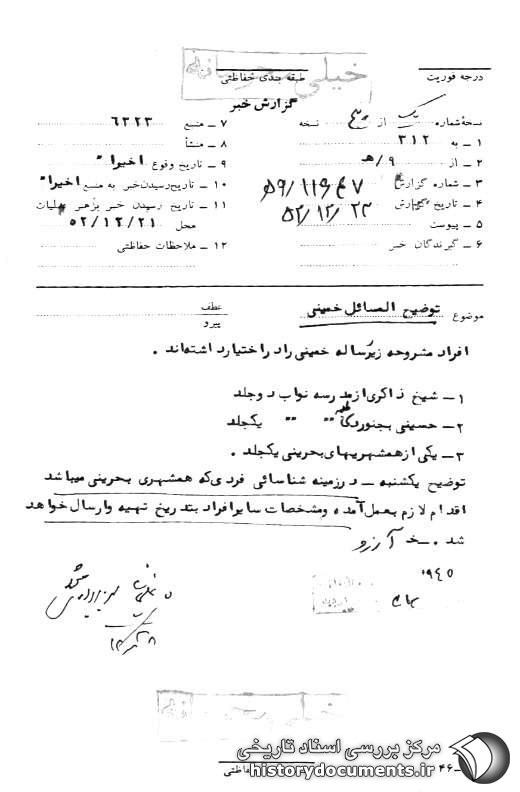 خیلی محرمانه
درجه فوریت
طبقه بندی حفاظتی
گزارش خبر
نسخهٔ شماره یک از نسخه
۱ ــ به ۳۱۲
۲ ــ از ۹/هـ
۳ ــ شماره گزارش
۴ ــ تاریخ گزارش ۵۲/۱۲/۲۳
۵ ــ پیوست
۶ ــ گیرندگان خبر
۷ ــ منبع ۶۳۲۳
۸ ــ منشأ
۹ ــ تاریخ وقوع اخیرا"
۱۰ ــ تاریخ رسیدن خبر به منبع اخیرا"
۱۱ ــ تاریخ رسیدن خبر برهبر عملیات
محل ۵۲/۱۲/۲۱
۱۲ ــ ملاحظات حفاظتی
موضوع توضیح المسائل خمینی
عطف
پیرو
افراد مشروحه زیر رساله خمینی را در اختیار داشته‌اند .
۱ــ شیخ ذاکری از مدرسه نواب دوجلد
۲ــ حسینی بجنوردی " " یکجلد
۳ــ یکی از همشهریهای بحرینی یکجلد .
توضیح یکشنبه ــ در زمینه شناسائی فردی که همشهری بحرینی میباشد
اقدام لازم بعمل آمده و مشخصات سایر افراد بتدریخ تهیه و ارسال خواهد
شد .ــ خ آرزو
۰۹۴۵
خیلی محرمانه
حفاظتی
۴۶ــ
مرکز بررسی اسناد تاریخی
historydocuments.ir